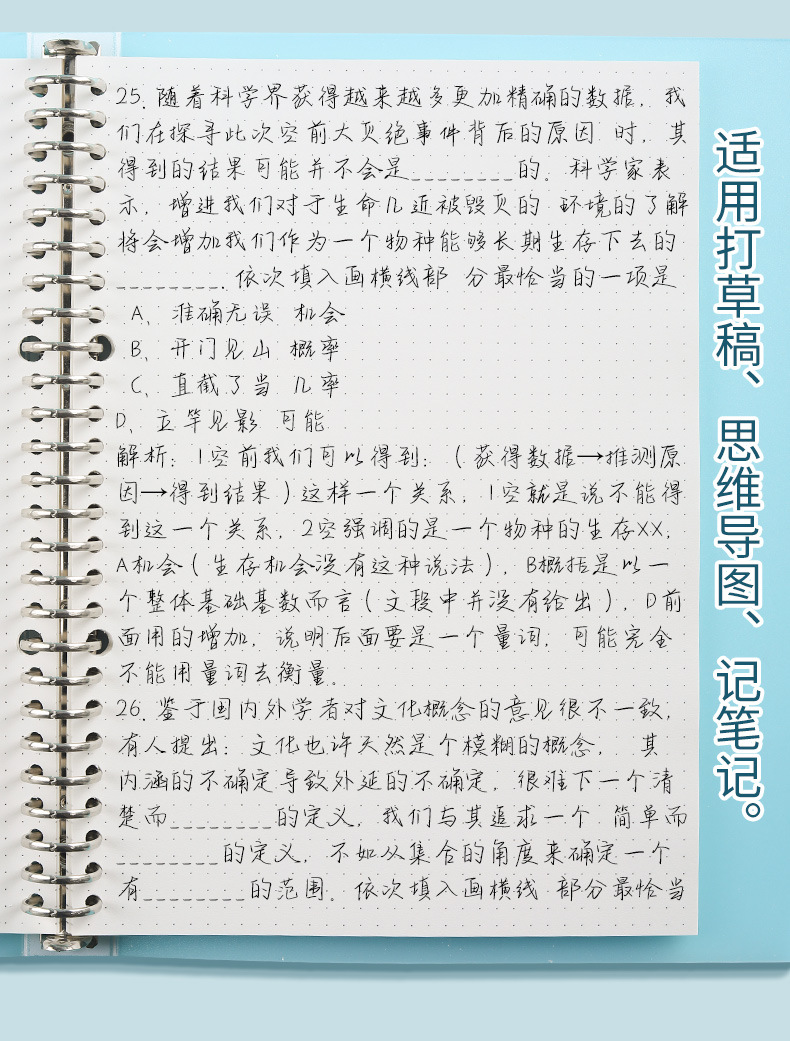 25. 随着科学界获得越来越多更加精确的数据，我
们在探寻此次空前大灭绝事件背后的原因 时，其
得到的结果可能并不会是________的。科学家表
示，增进我们对于生命几近被毁灭的 环境的了解
将会增加我们作为一个物种能够长期生存下去的
________.依次填入画横线部 分最恰当的一项是
A、准确无误 机会
B、开门见山 概率
C、直截了当 几率
D、立竿见影 可能
解析：1空前我们可以得到：（获得数据→推测原
因→得到结果）这样一个关系，1空就是说不能得
到这一个关系，2空强调的是一个物种的生存XX，
A机会（生存机会没有这种说法），B概括是以一
个整体基础基数而言（文段中并没有给出），D前
面用的增加，说明后面要是一个量词，可能完全
不能用量词去衡量。
26. 鉴于国内外学者对文化概念的意见很不一致，
有人提出：文化也许天然是个模糊的概念， 其
内涵的不确定导致外延的不确定，很难下一个清
楚而________的定义，我们与其追求一个 简单而
________的定义，不如从集合的角度来确定一个
有________的范围。依次填入画横线 部分最恰当
适用打草稿、思维导图、记笔记。